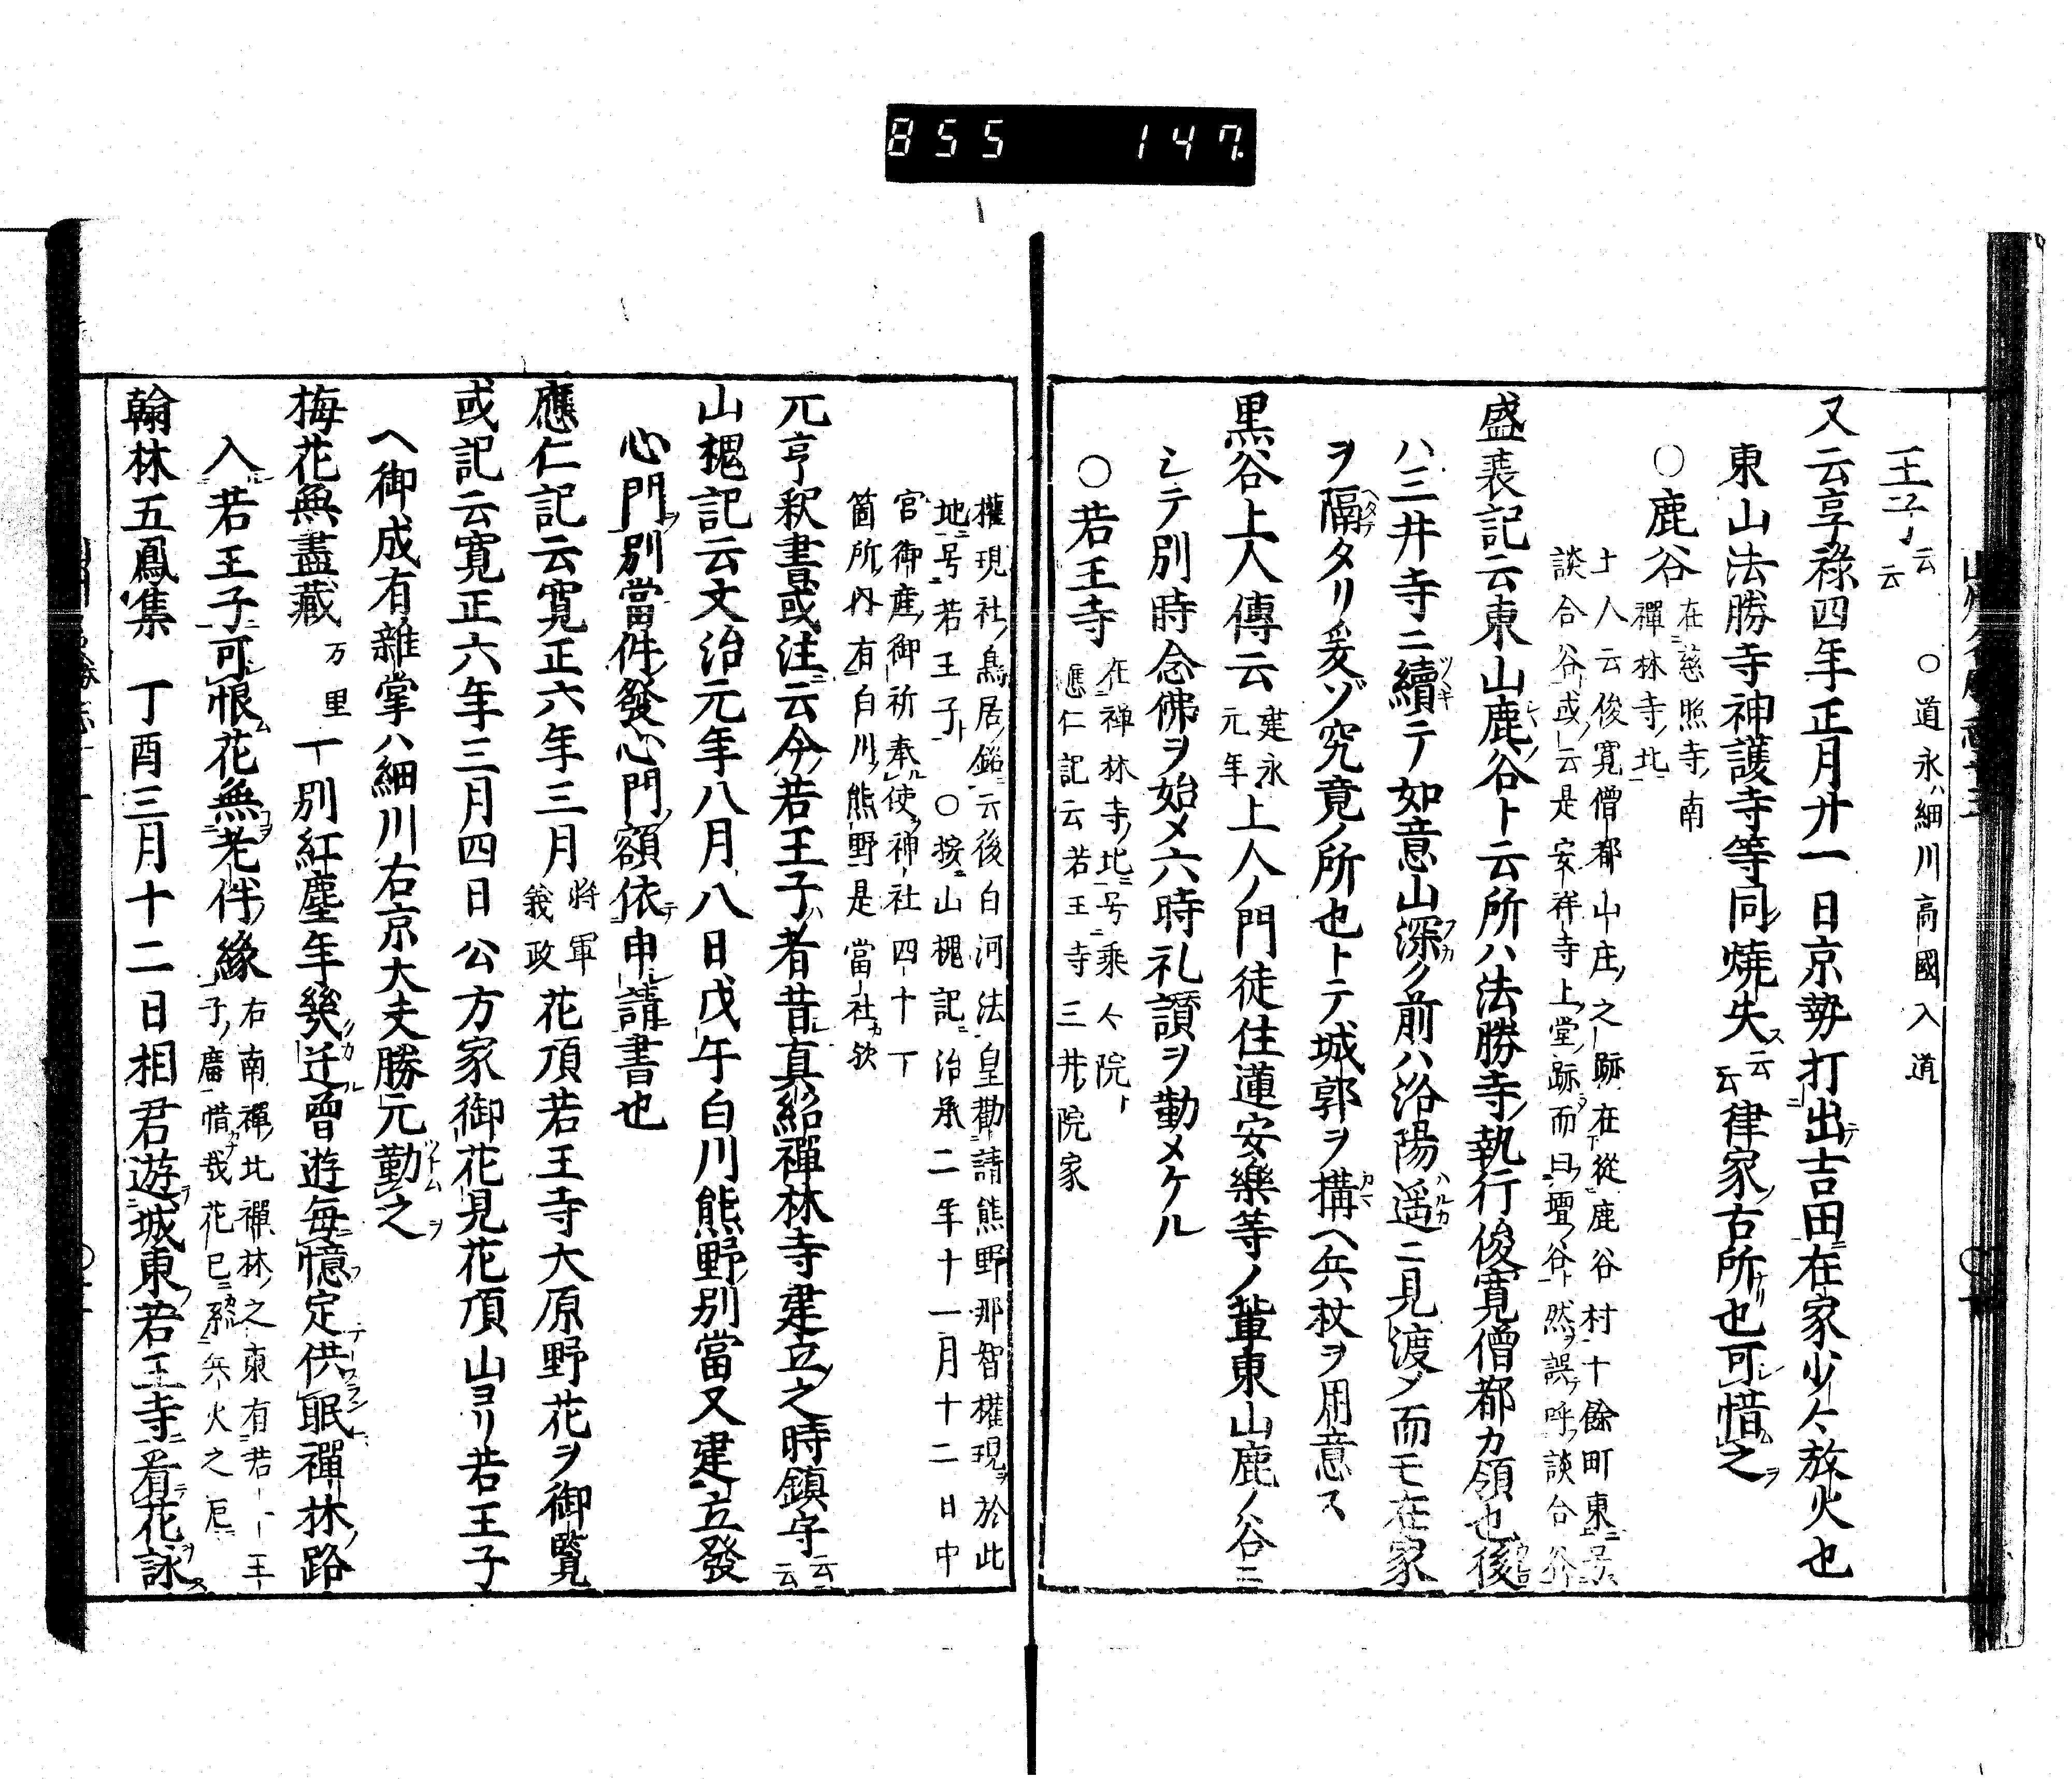 855 147
王子ノ云云 ○道永ハ細川高國入道
又云享祿四年正月廿一日京勢打出テ吉田在家少〻放火也
東山法勝寺神護寺等同ク燒失ス云云律家古所ナリ也可惜之ヲ
○鹿谷 在慈照寺ノ南禪林寺ノ北ニ
土人云俊寬僧都山庄ノ之跡在下從鹿谷村十餘町東ニ号ス
談合谷ト或ノ云是安祥寺上ノ堂ノ跡ニ而曰壇ノ谷ト然ヲ誤テ呼フ談合谷ト
盛衰記云東山鹿ノ谷ト云所ハ法勝寺ノ執行俊寬僧都カ領也後
ハ三井寺ニ續テ如意山深ク前ハ洛陽遥ニ見渡タ而モ在家
ヲ隔タリ爰ゾ究竟ノ所也トテ城郭ヲ搆ヘ兵杖ヲ用意ス
黒谷上人傳云 建永元年 上人ノ門徒住蓮安樂等ノ輩東山鹿ノ谷ニ
シテ別時念佛ヲ始メ六時礼讃ヲ勤メケル
○若王寺 在禅林寺ノ北ニ号ニ乘〻院ト
應仁記云若王寺三井ノ院家
權現社ノ鳥居ノ銘ニ云後白河法皇勸請熊野那智權現ヲ於此
地ニ号若王子ト ○按山槐記ニ治承二年十一月十二日中
宮御産ノ御祈奉使ヲ神社四十一
箇所ノ内有白川ノ熊野是當社カ欤
元亨釈書或注ニ云今ノ若王子ハ者昔シ真紹禪林寺建立ノ之時鎮守ト云云
山槐記云文治元年八月八日戊午白川熊野ノ別當又建立發
心門ヲ別當件ノ發心門ノ額依テ申請書也
應仁記云寬正六年三月 將軍義政 花頂若王寺大原野花ヲ御覽
或記云寬正六年三月四日公方家御花見花頂山ヨリ若王子
ヘ御成有雜掌ハ細川右京大夫勝元勤之ヲ
梅花無盡藏 万里 一別紅塵年幾迁ル曽遊毎憶定供眠禪林ノ路
入若王子可恨花無老伴ノ緣 右南禪北禪林ノ之東有若一王
子ノ廣惜哉花已ニ系ル兵火之厄ニ
翰林五鳳集 丁酉三月十二日相君遊城東ノ若王寺ニ看テ花ヲ詠ス